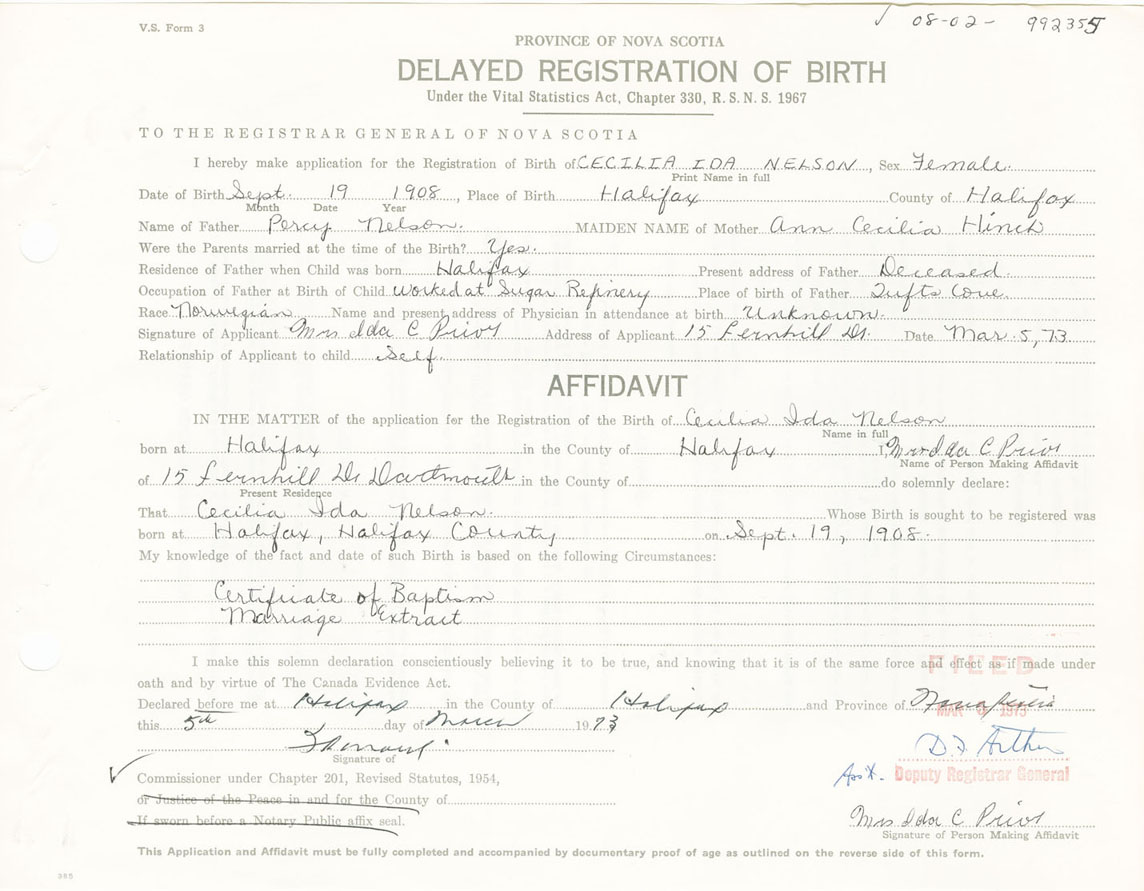 V.S. Form 3
✓ 08-02- 992355
PROVINCE OF NOVA SCOTIA
DELAYED REGISTRATION OF BIRTH
Under the Vital Statistics Act, Chapter 330, R.S.N.S. 1967
TO THE REGISTRAR GENERAL OF NOVA SCOTIA
I hereby make application for the Registration of Birth of CECILIA IDA NELSON, Sex Female.
Print Name in full
Date of Birth Sept. 19 1908, Place of Birth Halifax County of Halifax
Month Date Year
Name of Father Percy Nelson. MAIDEN NAME of Mother Ann Cecilia Hinch
Were the Parents married at the time of the Birth? Yes.
Residence of Father when Child was born Halifax Present address of Father Deceased.
Occupation of Father at Birth of Child worked at Sugar Refinery Place of birth of Father Tufts Cove.
Race Norwegian Name and present address of Physician in attendance at birth Unknown.
Signature of Applicant Mrs Ida C Prior Address of Applicant 15 Fernhill Dr. Date Mar. 5, 73.
Relationship of Applicant to child Self.
AFFIDAVIT
IN THE MATTER of the application for the Registration of the Birth of Cecilia Ida Nelson
Name in full
born at Halifax in the County of Halifax I, Mrs Ida C Prior
Name of Person Making Affidavit
of 15 Fernhill Dr Dartmouth in the County of do solemnly declare:
Present Residence
That Cecilia Ida Nelson. Whose Birth is sought to be registered was
born at Halifax, Halifax County on Sept. 19, 1908.
My knowledge of the fact and date of such Birth is based on the following Circumstances:
Certificate of Baptism
Marriage Extract
I make this solemn declaration conscientiously believing it to be true, and knowing that it is of the same force and effect as if made under
FILED
oath and by virtue of The Canada Evidence Act.
Declared before me at Halifax in the County of Halifax and Province of Nova Scotia
this 5th day of March 1973
MAR 1973
Signature of
D. F. Arthur
Ass't. Deputy Registrar General
✓ Commissioner under Chapter 201, Revised Statutes, 1954,
or Justice of the Peace in and for the County of
If sworn before a Notary Public affix seal.
Mrs Ida C Prior
Signature of Person Making Affidavit
This Application and Affidavit must be fully completed and accompanied by documentary proof of age as outlined on the reverse side of this form.
385